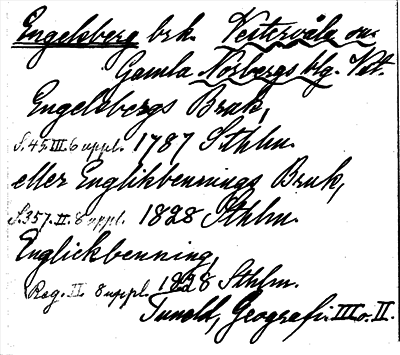 Engelsberg brk. Vestervåla sn.
Gamla Norbergs blg. Vst.
Engelsbergs Bruk,
S. 45. III. 6 uppl. 1787 Sthlm.
eller Englikbennings Bruk,
S. 357. II. 8 uppl. 1828 Sthlm.
Englickbenning,
Reg. II 8 uppl. 1828 Sthlm.
Tuneld, Geografi III o. II.